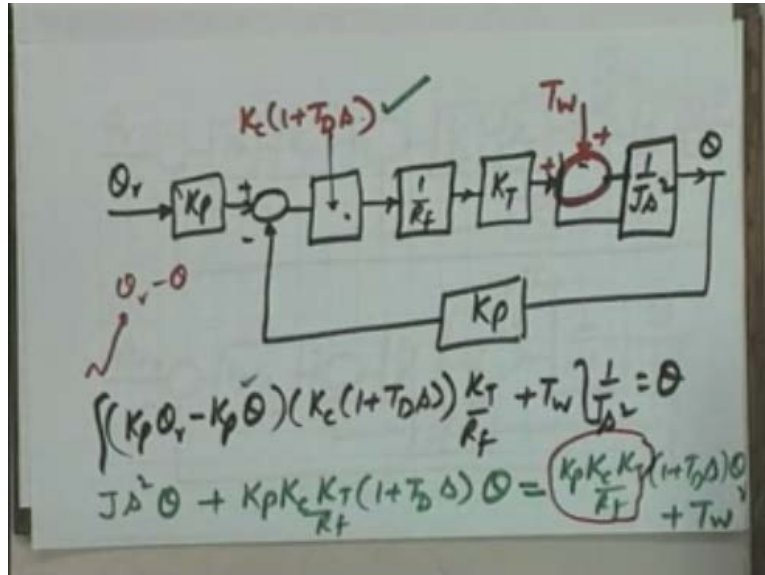 K_c(1+T_D s) ✓
T_W
+
θ_r
K_P
+
-
1/R_f
K_T
+
-
1/Js²
θ
θ_r - θ
K_P
{(K_P θ_r - K_P θ)(K_c(1+T_D s)) K_T/R_f + T_W} 1/Js² = θ
Js²θ + K_P K_c K_T/R_f (1+T_D s) θ = K_P K_c K_T/R_f (1+T_D s)θ_r
+ T_W